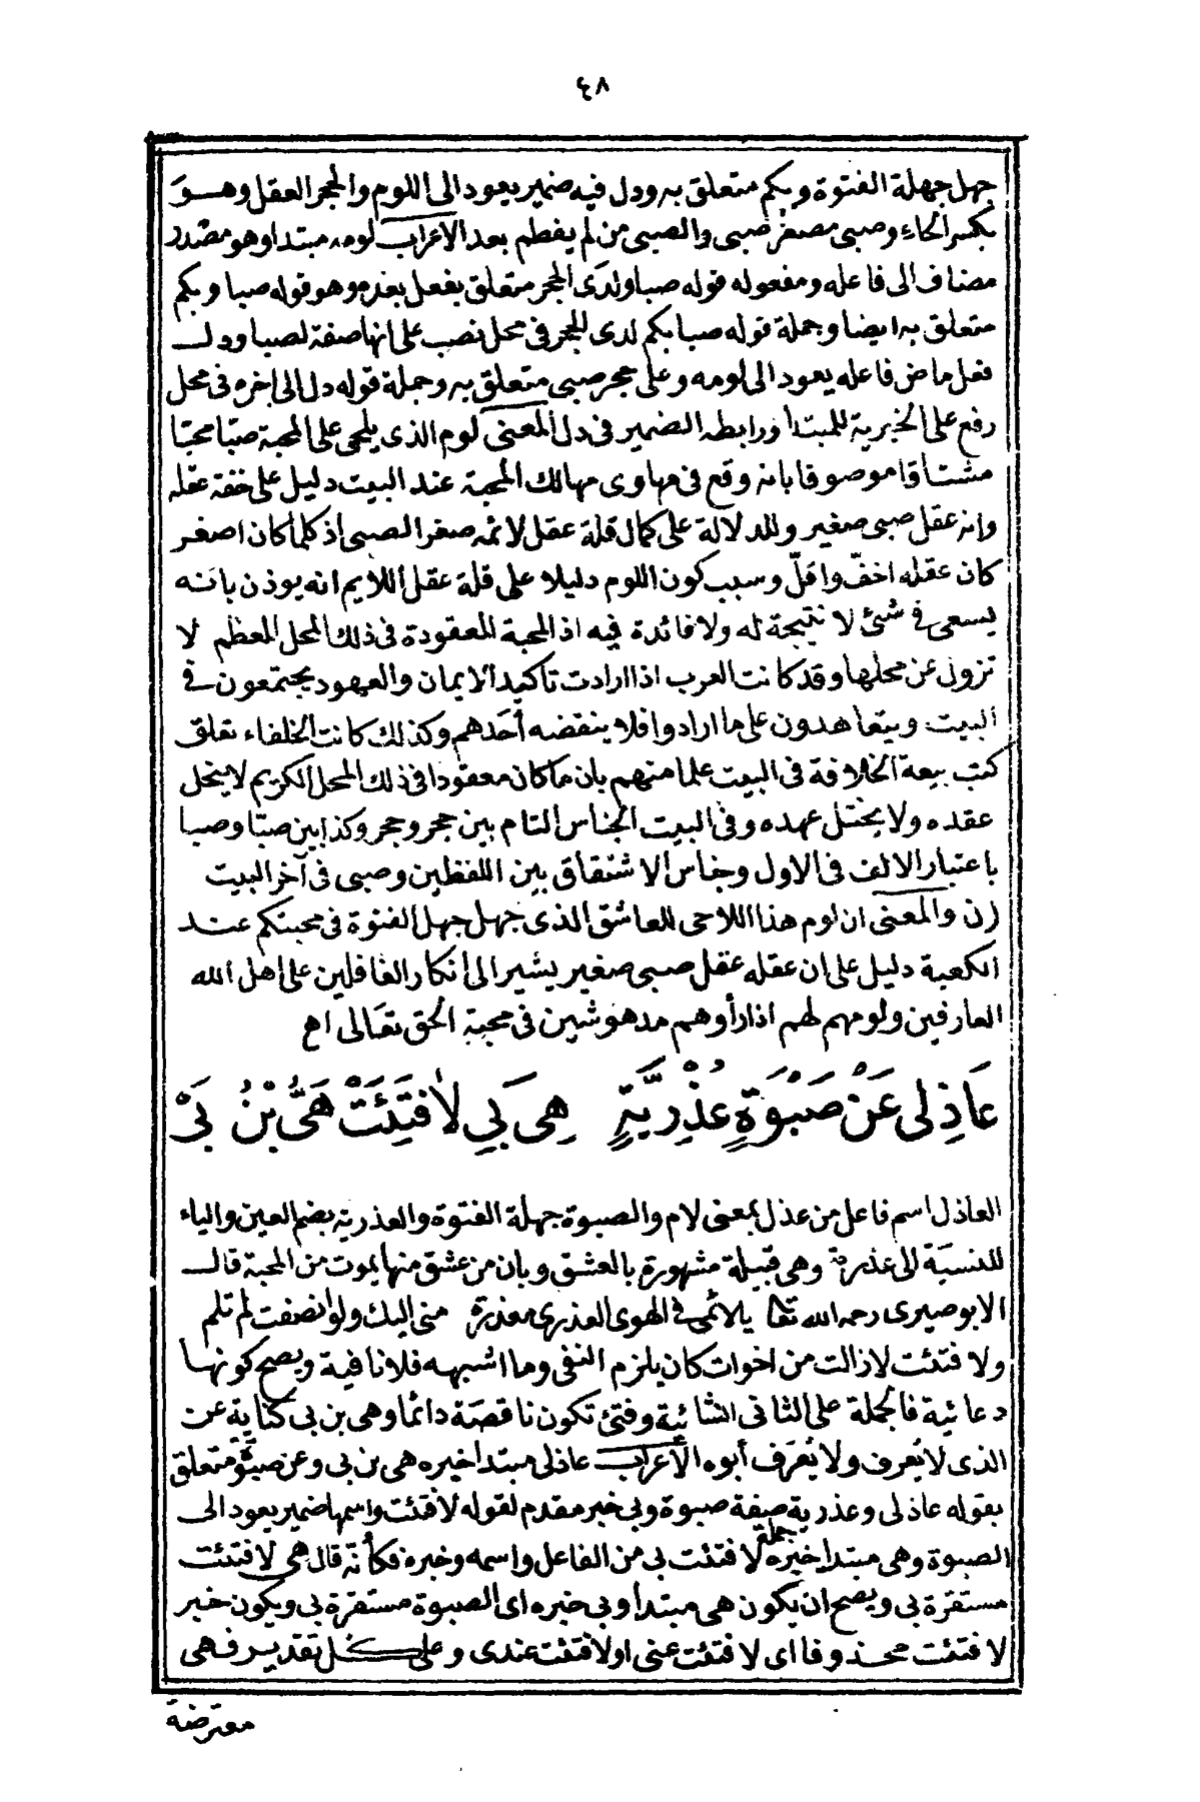 ٤٨
جهل جهلة الفتوة وبكم متعلق به ودل فيه ضمير يعود الى اللوم والحجر العقل وهو
بكسر الحاء وصبي مصغر صبي والصبي من لم يفطم بعد الاعراب لومه مبتدا وهو مصدر
مضاف الى فاعله ومفعوله قوله صبا ولدى الحجر متعلق بفعل بعده وهو قوله صبا وبكم
متعلق به ايضا وجملة قوله صبا بكم لدى الحجر في محل نصب على انها صفة لصبا ودل
فعل ماض فاعله يعود الى لومه وعلى حجر صبي متعلق به وجملة قوله دل الى اخره في محل
رفع على الخبرية للمبتدا ورابطه الضمير في دل المعنى لوم الذى يلحى على المحبة صبّا محبّا
مشتاقا موصوفا بانه وقع في مهاوى مهالك المحبة عند البيت دليل على خفة عقله
وانه عقل صبي صغير وللدلالة على كمال قلة عقل لائمه صغر الصبي اذ كلما كان اصغر
كان عقله اخفّ واقلّ وسبب كون اللوم دليلا على قلة عقل اللايم انه يوذن بانه
يسعى في شئ لا نتيجة له ولا فائدة فيه اذ المحبة المعقودة في ذلك المحل المعظم لا
تزول عن محلها وقد كانت العرب اذا ارادت تاكيد الايمان والعهود يجتمعون في
البيت ويتعاهدون على ما ارادوا فلا ينقضه أحدهم وكذلك كانت الخلفاء تعلق
كتب بيعة الخلافة في البيت علما منهم بان ما كان معقودا في ذلك المحل الكريم لا ينحل
عقده ولا يختل عهده وفي البيت الجناس التام بين حجر وحجر وكذا بين صبّا وصبا
باعتبار الالف في الاول وجناس الاشتقاق بين اللفظين وصبي في آخر البيت
زن والمعنى ان لوم هذا اللاحي للعاشق الذى جهل جهل الفتوة في محبتكم عند
الكعبة دليل على ان عقله عقل صبي صغير يشير الى انكار الغافلين على اهل الله
العارفين ولومهم لهم اذا رأوهم مدهوشين في محبة الحق تعالى اهـ
عَاذِلى عَنْ صَبْوَةٍ عُذْرِيَّةٍ هِىَ بي لَافَتِئَتْ هَىُّ بْنُ بَىّْ
العاذل اسم فاعل من عذل بمعنى لام والصبوة جهلة الفتوة والعذرية بضم العين والياء
للنسبة الى عذرة وهي قبيلة مشهورة بالعشق وبان من عشق منها يموت من المحبة قال
الابوصيرى رحمه الله تعا يا لائمى في الهوى العذرى معذرة منى اليك ولو انصفت لم تلم
ولا فتئت لا زالت من اخوات كان يلزم النفى وما اشبهه فلا نافية ويصح كونها
دعائية فالجملة على الثانى انشائية وفتئ تكون ناقصة دائما وهى بن بى كناية عن
الذى لا يُعرف ولا يُعرَف أبوه الاعراب عاذلى مبتدا خبره هى بن بى وعن صبوة متعلق
بقوله عاذلى وعذرية صفة صبوة وبي خبر مقدم لقوله لا فتئت واسمها ضمير يعود الى
الصبوة وهى مبتدا خبره جملة لا فتئت بى من الفاعل واسمه وخبره فكأنه قال هى لا فتئت
مستقرة بى ويصح ان يكون هى مبتدا وبى خبره اى الصبوة مستقرة بى ويكون خبر
لا فتئت محذوفا اى لا فتئت عنى او لا فتئت عندى وعلى كل تقدير فهى
معترضة